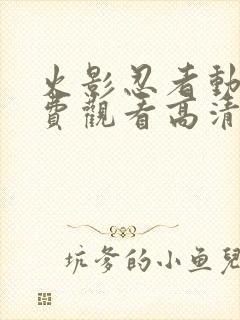 火影忍者動
費觀看高清
坑爹的小鱼兒